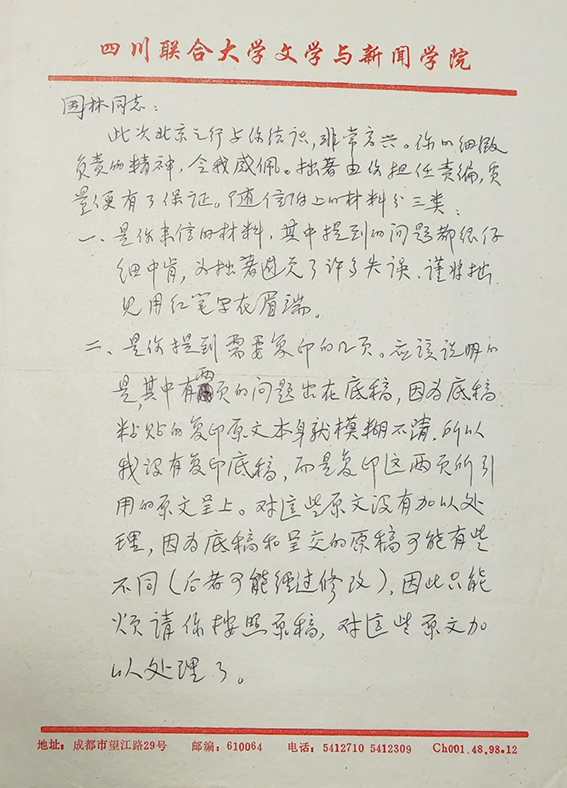 四川联合大学文学与新闻学院
国林同志：
此次北京之行与你结识，非常高兴。你的细致
负责的精神，令我感佩。拙著由你担任责编，质
量便有了保证。随信附上的材料分三类：
一、是你来信的材料，其中提到的问题都很仔
细中肯，为拙著避免了许多失误，谨将拙
见用红笔写在眉端。
二、是你提到需要复印的几页。应该说明的
是，其中有两页的问题出在底稿，因为底稿
粘贴的复印原文本身就模糊不清，所以
我没有复印底稿，而是复印这两页所引
用的原文呈上。对这些原文没有加以处
理，因为底稿和呈交的原稿可能有些
不同（后者可能经过修改），因此只能
烦请你按照原稿，对这些原文加
以处理了。
地址：成都市望江路29号 邮编：610064 电话：5412710 5412309 Ch001.48.98.12